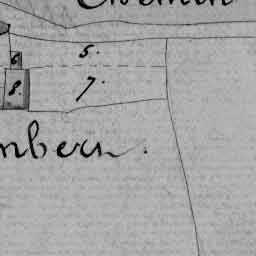 5.
6
7.
8.
nbern.